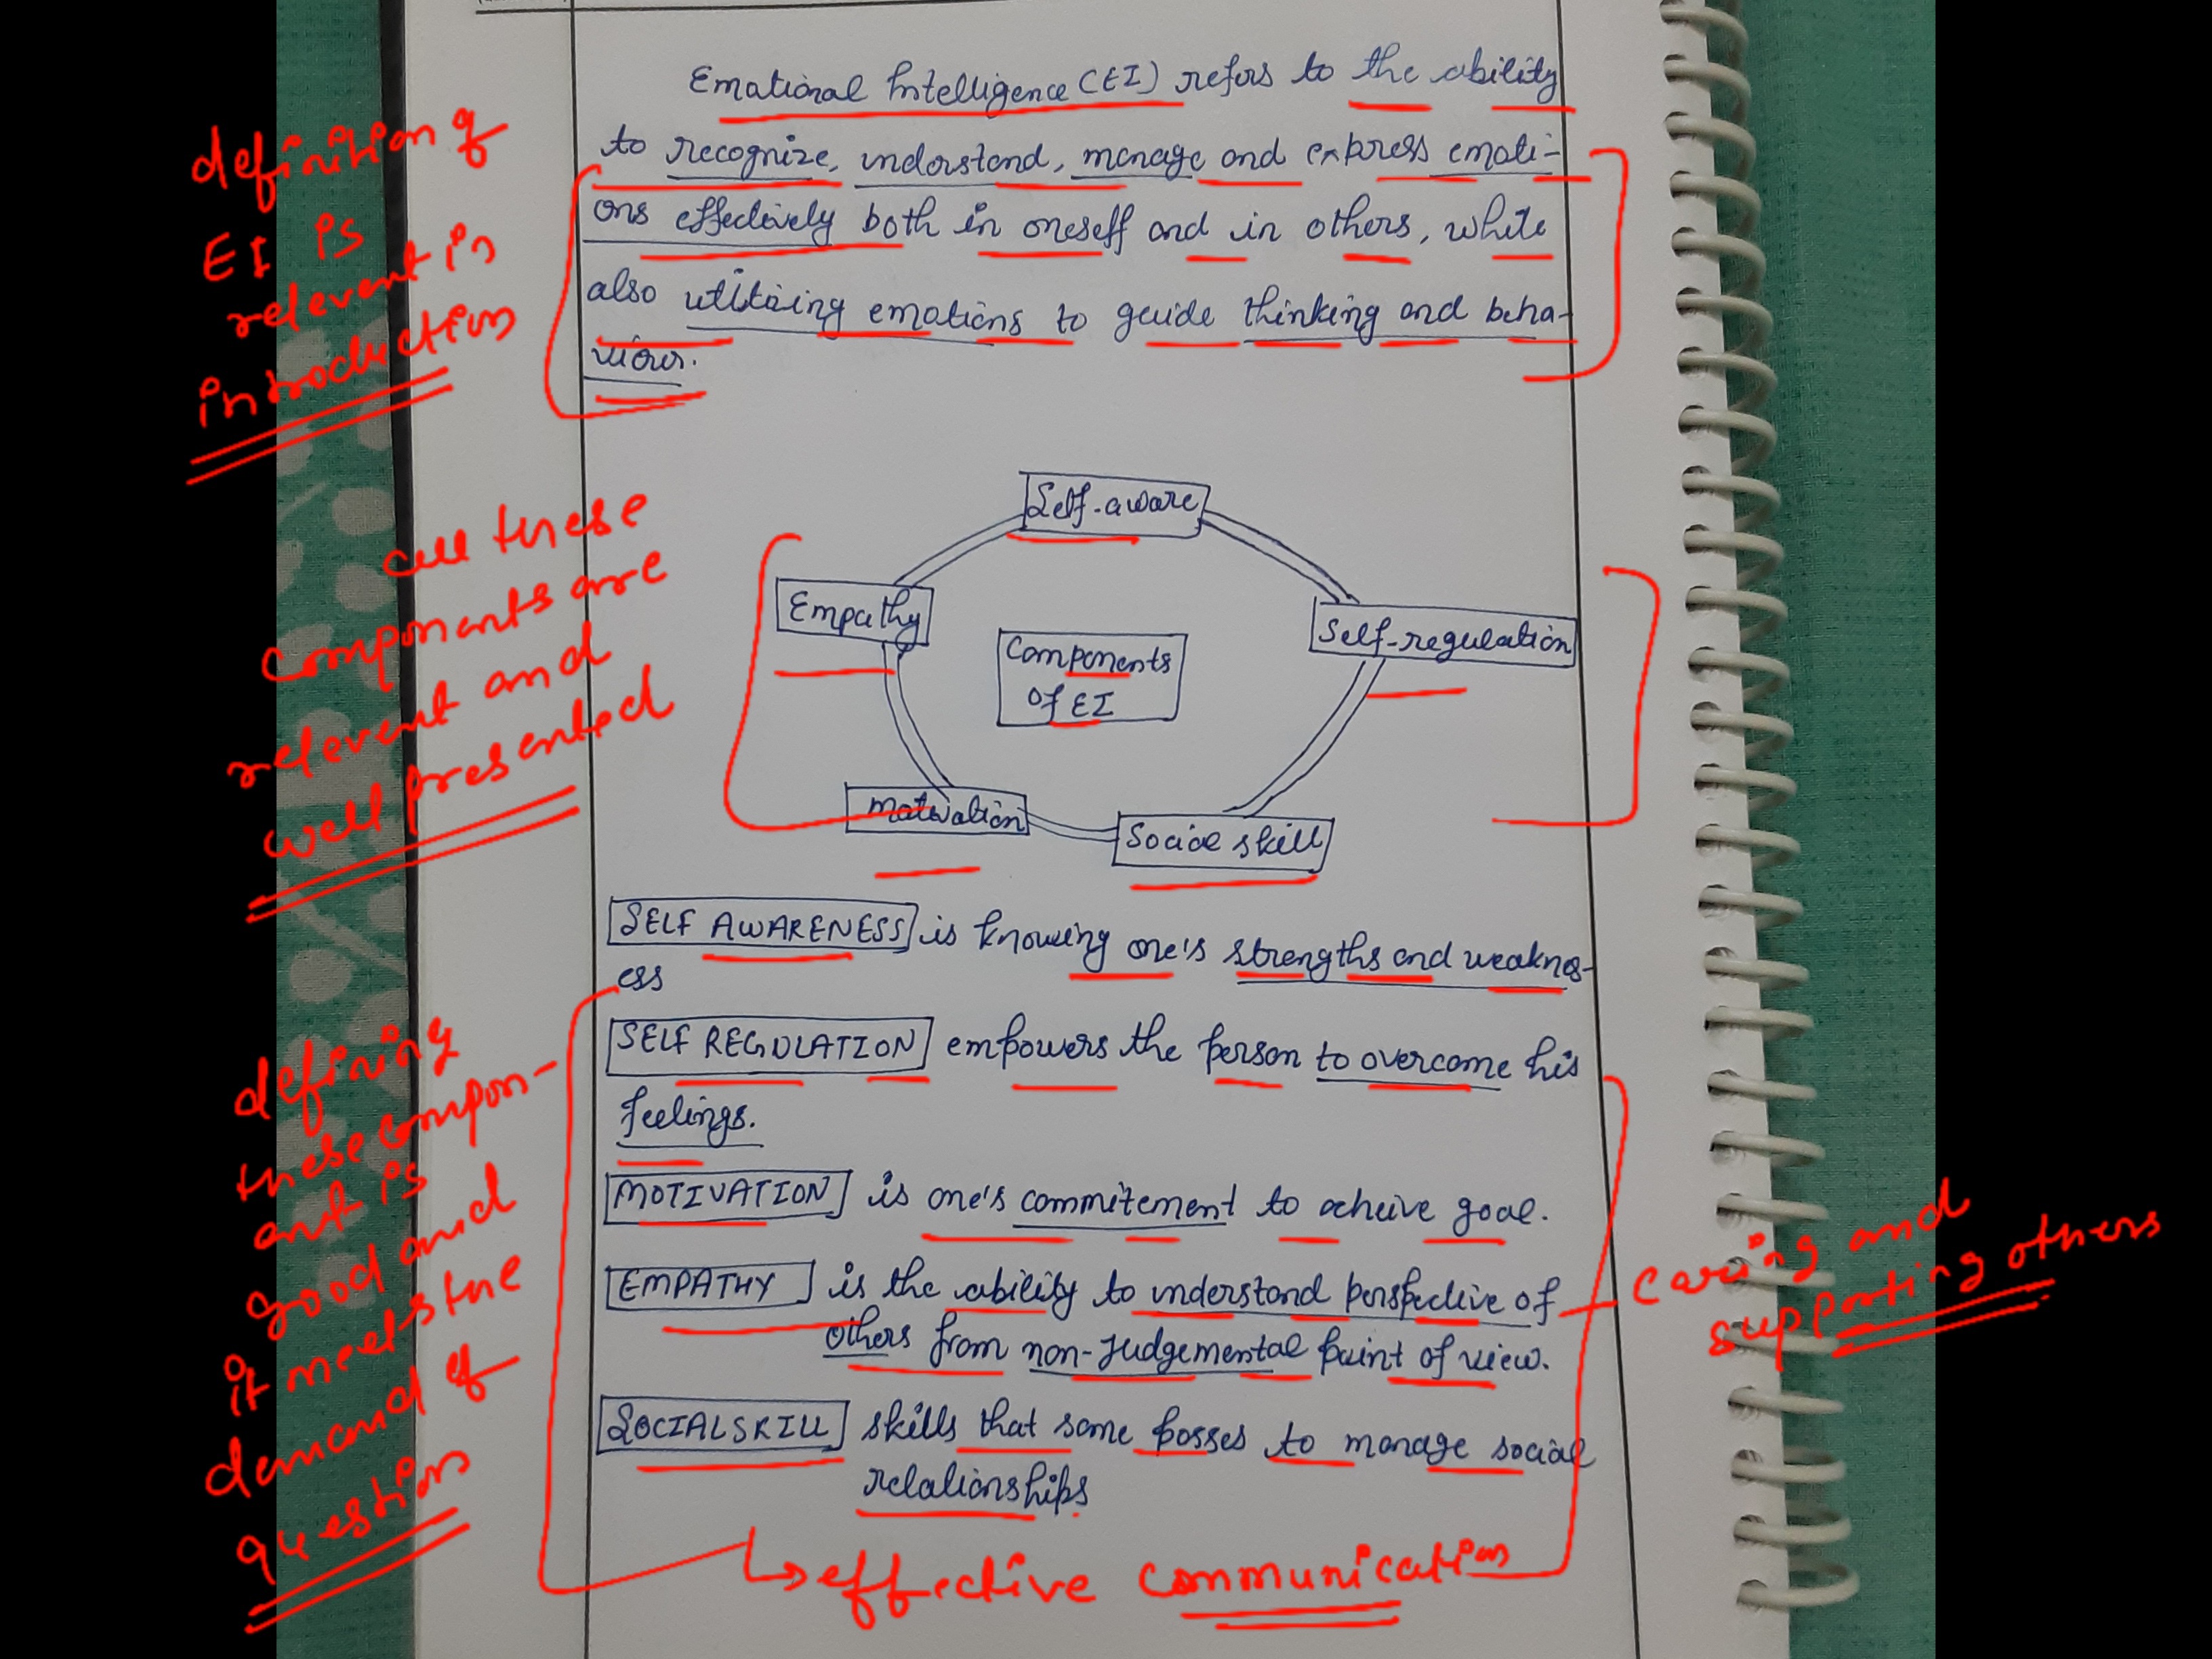 Emational Intelligence (EI) refers to the ability
to recognize, understand, manage and express emoti-
ons effectively both in oneself and in others, while
also utilizing emotions to guide thinking and beha-
viour.
definition of
EI is
relevent in
introduction
Self-aware
Empathy
Self-regulation
Components
of EI
Motivation
Social skill
all these
componants are
relevent and
well presented
SELF AWARENESS is knowing one's strengths and weaknes-
ess
SELF REGULATION empowers the person to overcome his
feelings.
MOTIVATION is one's commitement to acheive goal.
EMPATHY is the ability to understand perspective of
others from non-judgemental point of view.
SOCIAL SKILL skills that some posses to manage social
relationships
defining
these compon-
ant is
good and
it meets the
demand of
question
caring and
supporting others
effective communication